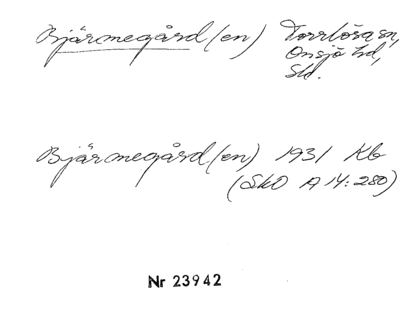 Bjärmegård(en) Torrlösa sn,
Onsjö hd,
Skå.
Bjärmegård(en) 1931 Kb
(SkO A 14:280)
Nr 23942